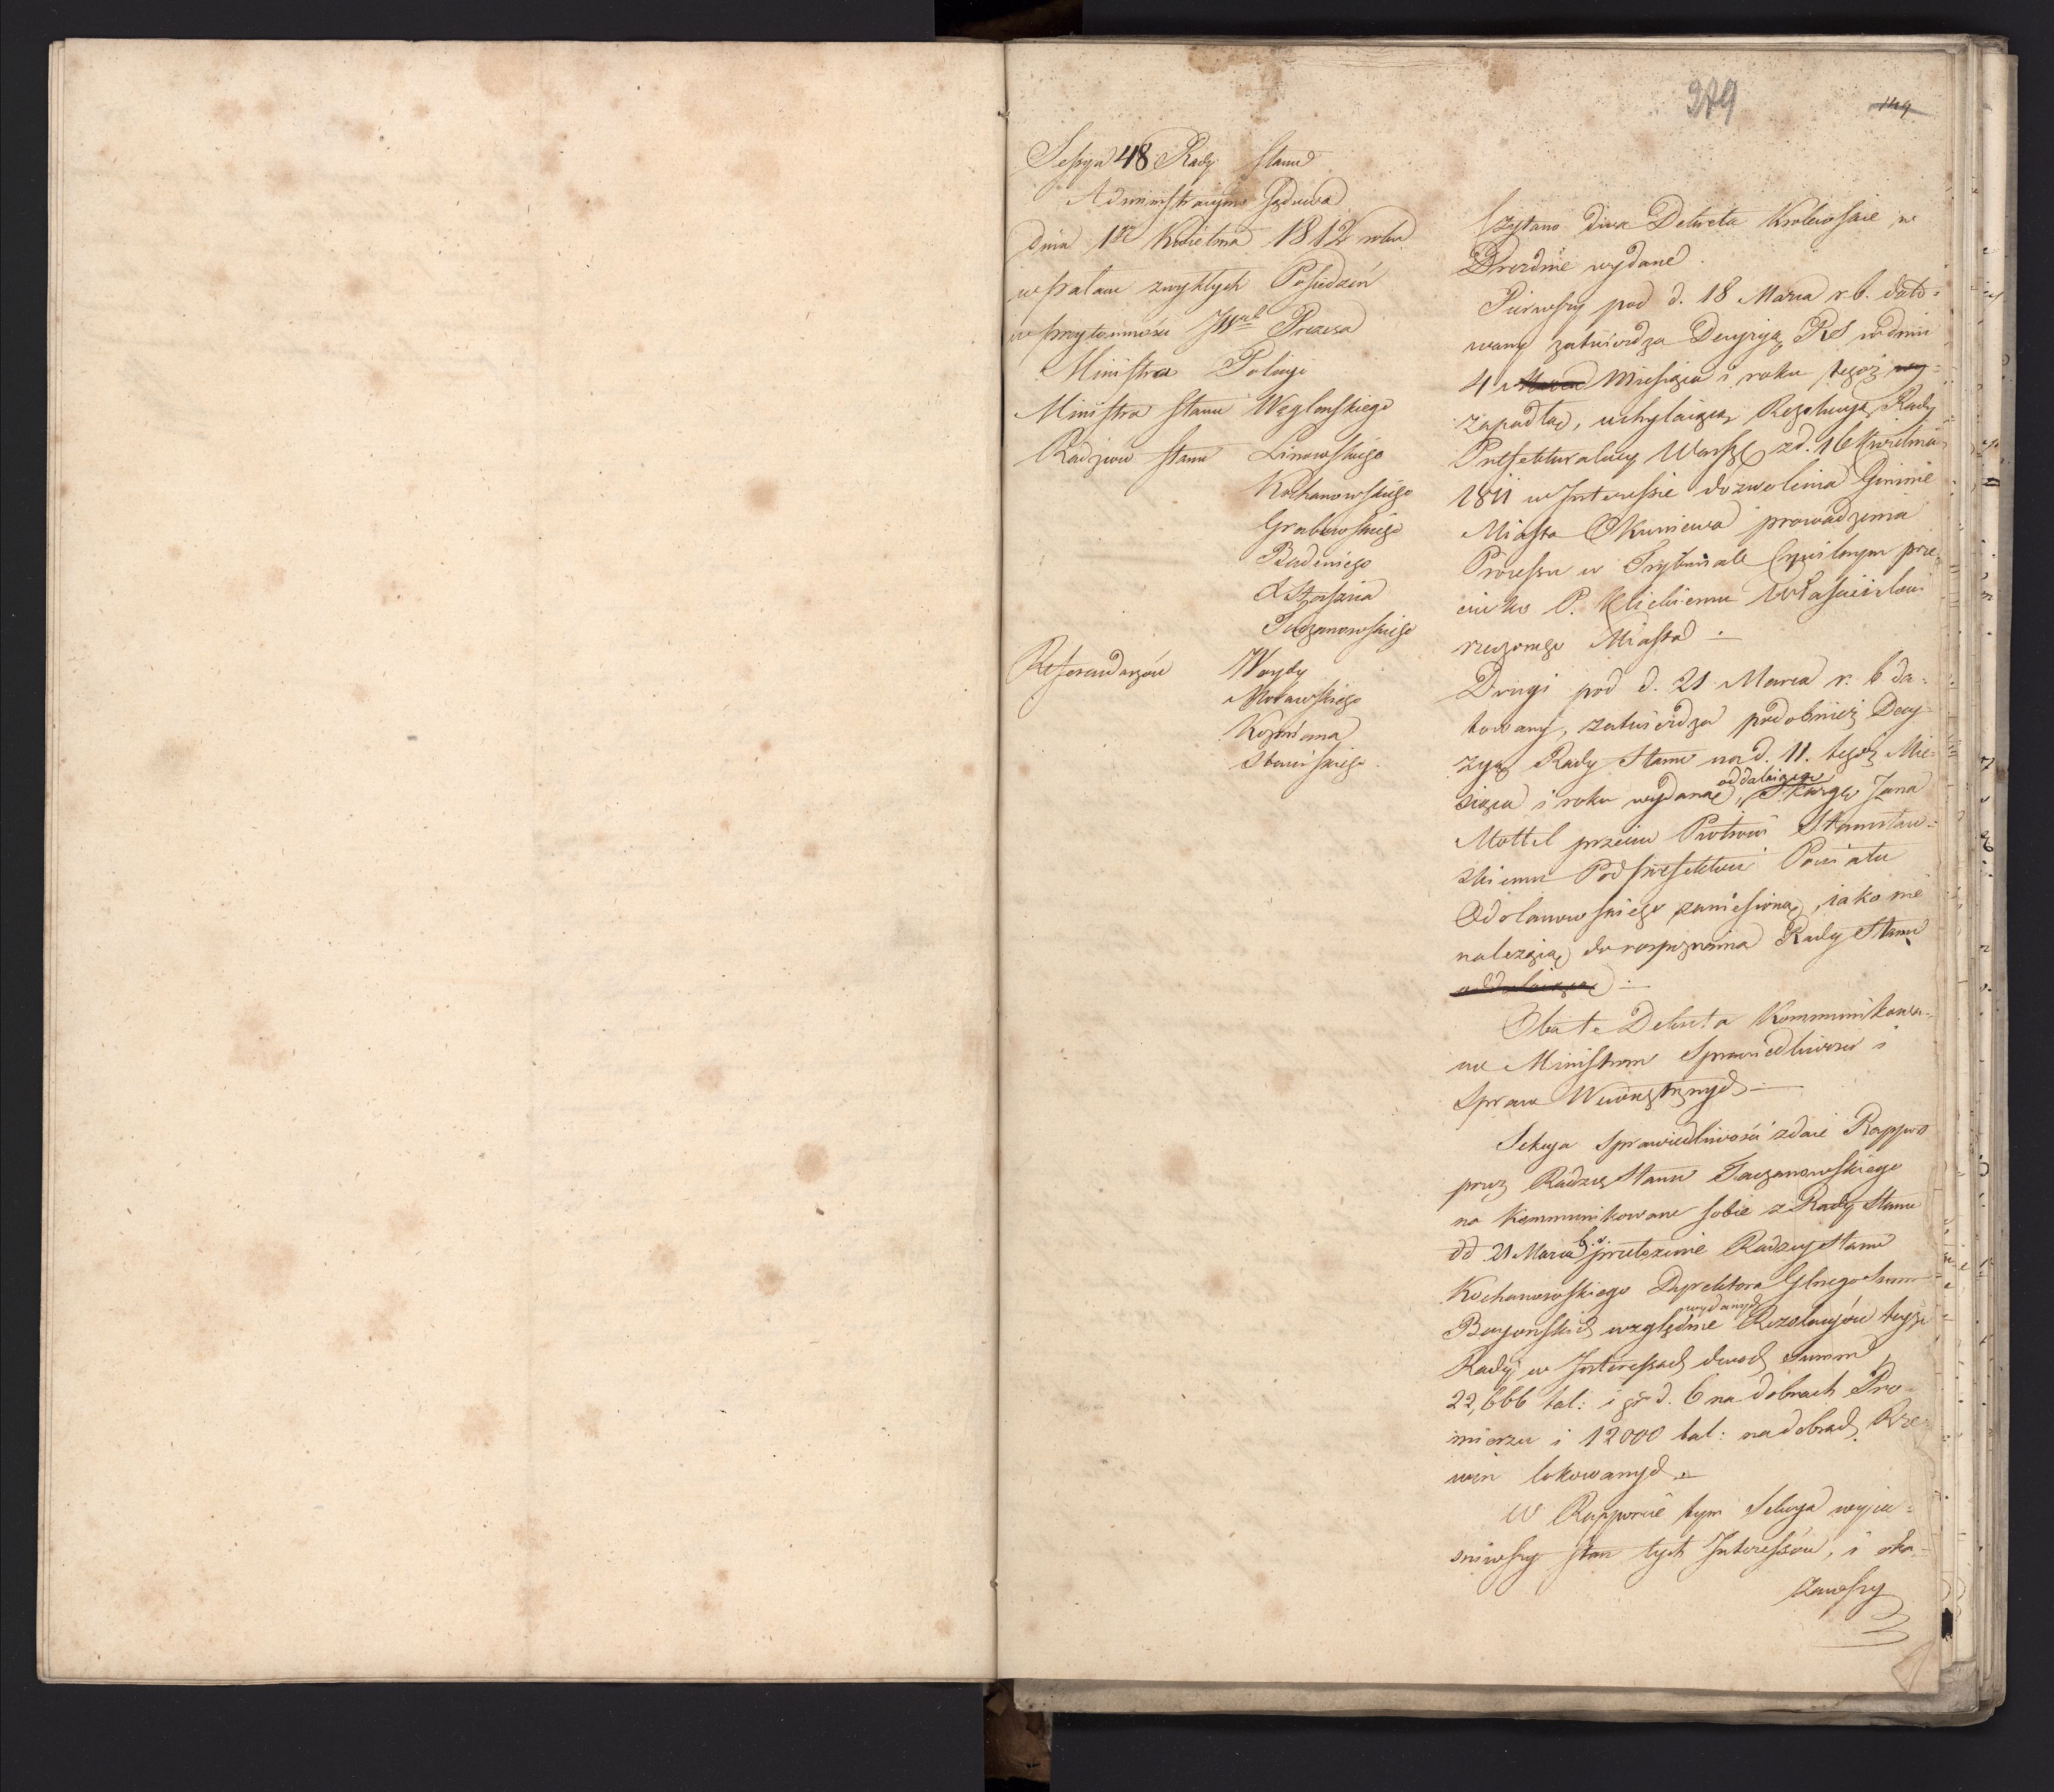 379
149
Sessya 48 Rady Stanu
Administracyjno Sądowa
dnia 1go Kwietnia 1812 roku
w pałacu zwykłych Posiedzeń
w przytomności JW Prezesa
Ministra Policyi
Ministra Stanu Węglenskiego
Radzców Stanu Linowskiego
Kochanowskiego
Grabowskiego
Badeniego
X Staszica
Taczanowskiego
Referendarzów Woydy
Morawskiego
Koźmiana
Czytano dwa Dekreta Krolewskie w
Dreznie wydane.
Pierwszy pod d. 18 Marca r. b. dato=
wany zatwierdza Decyzyą RS w dniu
4 Marca Miesiąca i roku tegoż wy=
zapadłą, uchylaiącą Rezolucyą Rady
Prefekturalney Warsz z d. 16 Kwietnia
1811 w Interessie dozwolenia Gminie
Miasta Okuniewa prowadzenia
Processu w Trybunale Cywilnym prze=
ciwko P. Klickiemu Właścicielowi
rzeczonego Miasta.—
Drugi pod d. 21 Marca r. b da=
towany, zatwierdza podobnież Decy=
zyą Rady Stanu na d. 11. tegoż Mie=
siąca i roku wydaną, oddalaiącą Skargę Jana
Mottel przeciw Piotrowi Stamirow=
skiemu Podprefektowi Powiatu
Odolanowskiego zaniesioną, iako nie
należącą do rozpoznania Rady Stanu
oddalaiącą.—
Oba te Dekreta Kommunikowa=
ne Ministrom Sprawiedliwości i
Spraw Wewnętrznych.—
Sekcya Sprawiedliwości zdaie Rapport
przez Radzcę Stanu Taczanowskiego
na Kommunikowane sobie z Rady Stanu
dd 21 Marca b. r. przełożenie Radzcy Stanu
Kochanowskiego Dyrektora Glnego Summ
Bayonskich względnie wydanych Rezolucyów teyże
Rady w Interessach dwoch Summ
22,666 tal: i gr d. 6 na dobrach Pro=
mierzu i 12000 tal: na dobrach Krze=
win lokowanych.—
W Rapporcie tym Sekcya wyia=
śniwszy stan tych Interessów, i oka=
zawszy